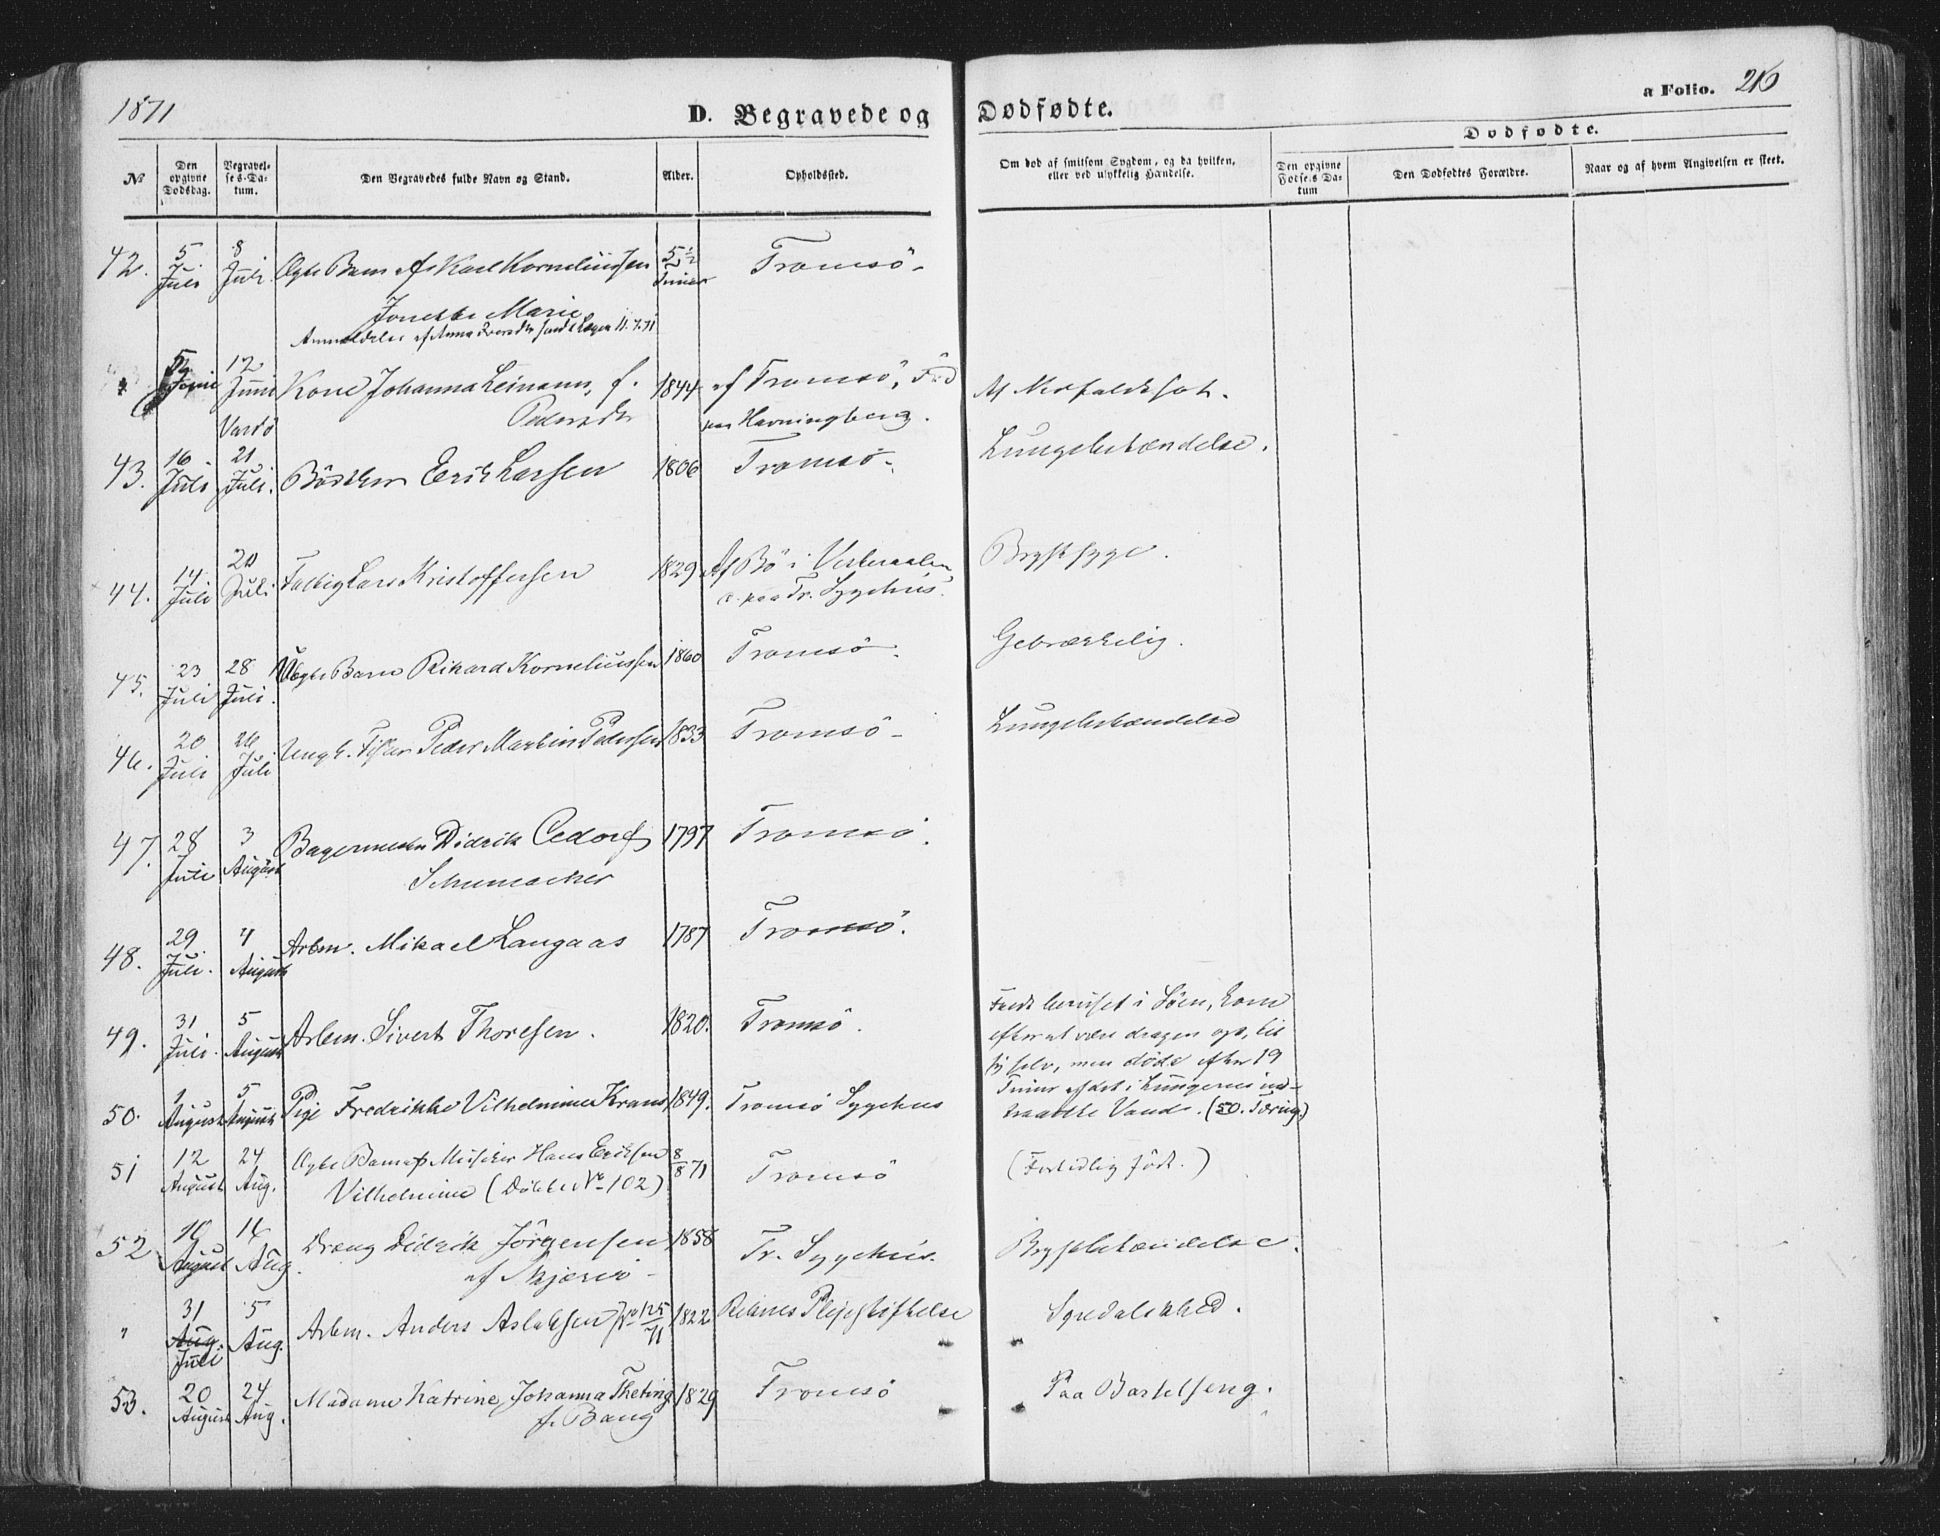 1871
D. Begravede og Dødfødte.
a Folio. 216
No
Den opgivne Dødsdag.
Begravelses-Datum.
Den Begravedes fulde Navn og Stand.
Alder.
Opholdssted.
Om død af smitsom Sygdom, og da hvilken, eller ved ulykkelig Hændelse.
Dødfødte.
Den opgivne Fødsels-Datum
Den Dødfødtes Forældre.
Naar og af hvem Angivelsen er skeet.
42. 5 Juli 8 Juli Ægte Barn af Karl Korneliussen 5 1/2 Timer Tromsö
Jonette Marie
Anmeldelse af Anna 11.7.71
5 Juni 12 Juni Vardö Kone Johanna Leimann, f. 1844 af Tromsö, Död
Pedersdr paa Havningberg. Af Nerfaldssot.
43. 16 Juli 21 Juli. Bödker Erik Larsen 1806 Tromsö. Lungebetændelse.
44. 14 Juli 20 Juli Fattig Lars Kristoffersen 1829 Af Bö i Vesteraalen Brystsyge.
d. paa Tr. Sygehus.
45. 23 Juli 28 Juli. Uægte Barn Rikard Korneliussen 1860 Tromsö. Gebrækkelig.
46. 20 Juli 26 Juli Ungk. Fisker Peder Martin Pedersen 1833 Tromsö Lungebetændelse
47. 28 Juli 3 August Bagermester Didrik Cedorf 1797 Tromsö.
Schumacher
48. 29 Juli. 4 August Arbm. Mikael Langaas 1787 Tromsö.
49. 31 Juli. 5 August Arbm. Sivert Thoresen. 1820. Tromsö. Faldt beruset i Söen, kom
efter at være dragen op, til
sig selv, men döde efter 19
Timer af det i Lungerne ind-
trædte Vand. (50. Tæring)
50. 1 August 5 August Pige Fredrikke Vilhelmine Krane 1849. Tromsö Sygehus
51 12 August 24 Aug. Ægte Barn af Musiker Hans Eriksen 8/8 71 Tromsö (Fortidlig födt.)
Vilhelmine (Döbte No 102)
52 10 August 14 Aug. Dreng Didrik Jörgensen 1858 Tr. Sygehus. Brystbetændelse.
af Skjærvö
" 31 Aug. Juli 5 Aug. Arbm. Anders Aslaksen 125/71 1822 Rebnes Plejestiftelse Spedalskhed.
53. 20 August 24 Aug. Madame Katrine Johanna Theting 1829 Tromsö Paa Barselseng.
f. Bang